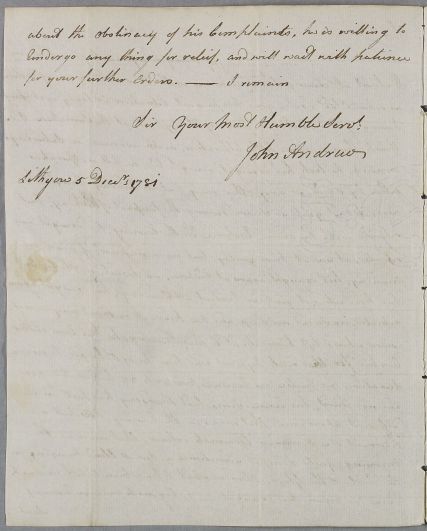 about the obstinacy of his Complaints, he is willing to
Undergo any thing for relief, and will wait with patience
for your further Orders. — I remain
Sir Your Most Humble Servt.
John Andrew
Lithgow 5 Decr. 1781